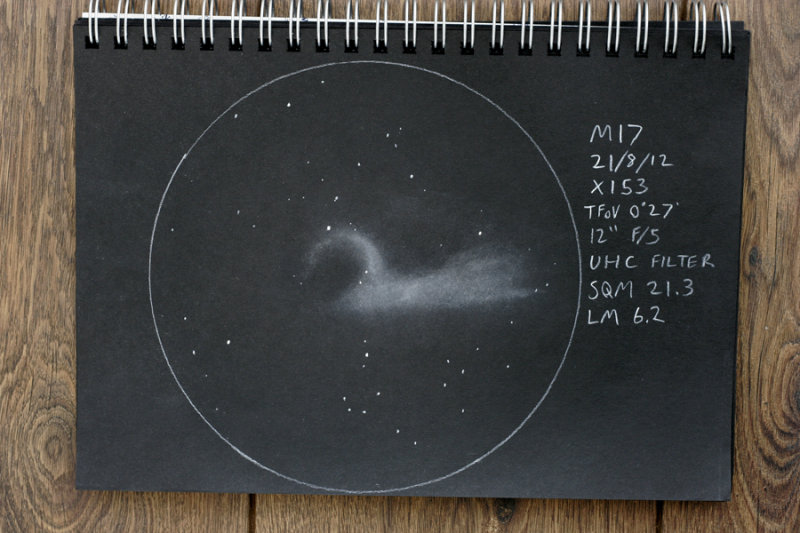 M17
21/8/12
X153
TFOV 0°27'
12" F/5
UHC FILTER
SQM 21.3
LM 6.2